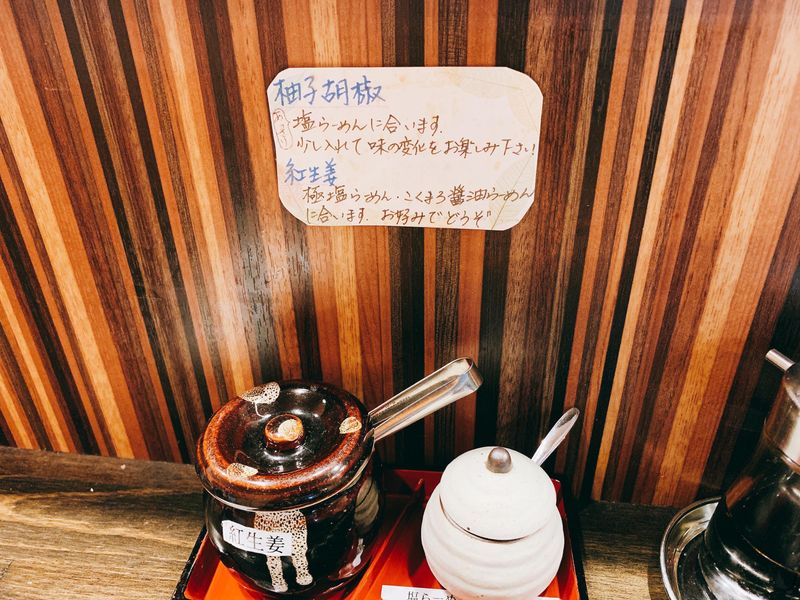 柚子胡椒
あっさり 塩らーめんに合います.
少し入れて 味の変化をお楽しみ下さい!
紅生姜
極塩らーめん・こくまろ醤油らーめん
に合います. お好みでどうぞ
紅生姜
塩らーめ